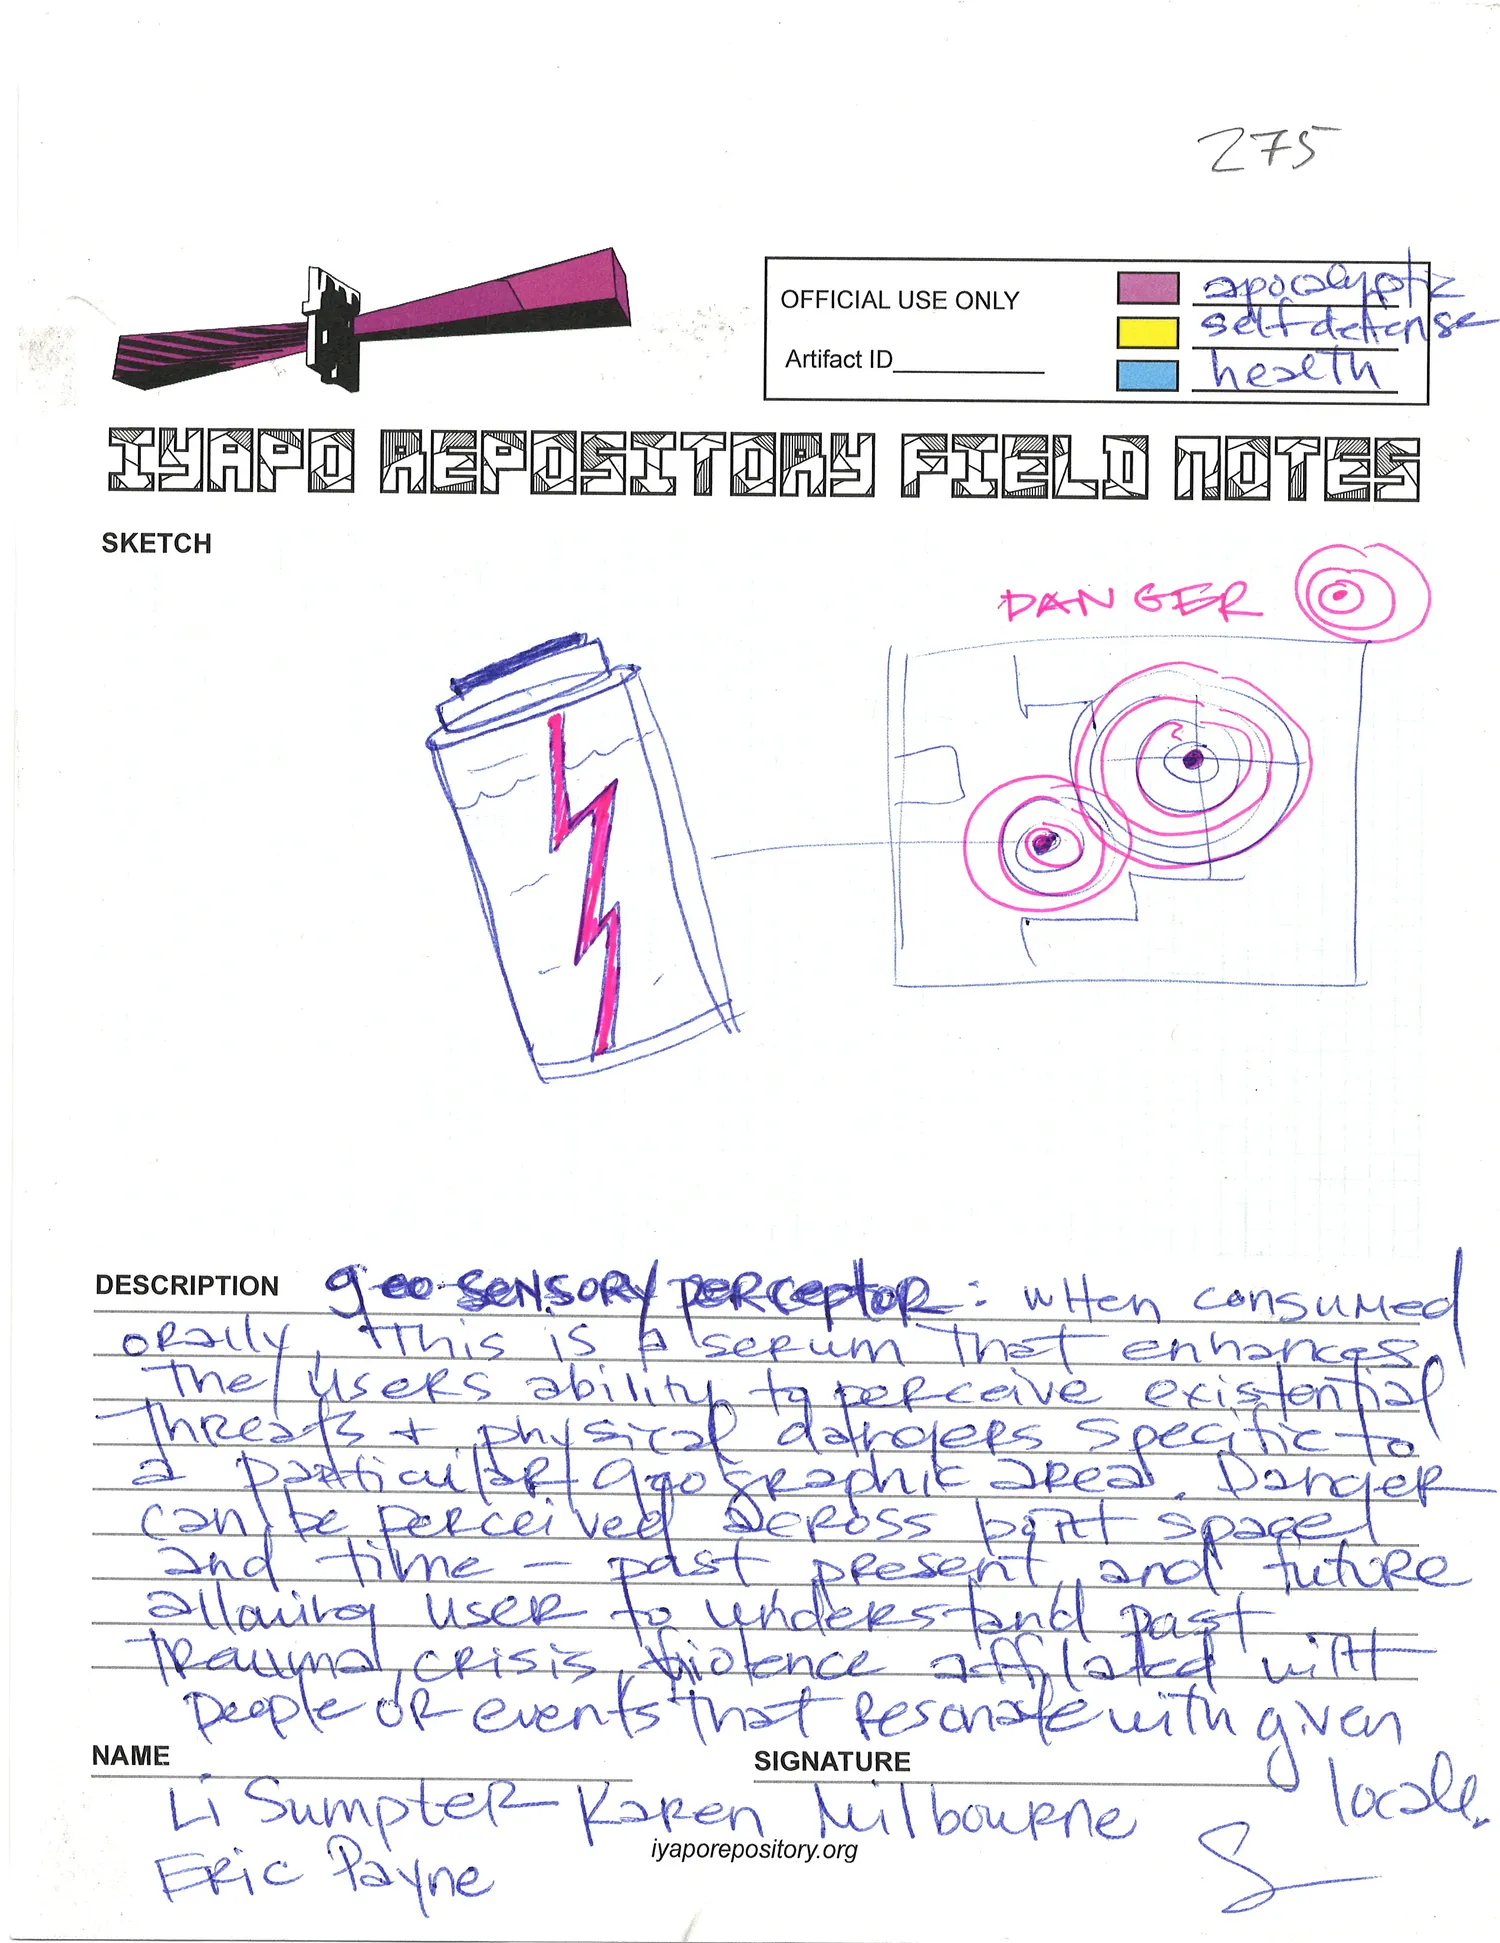 275
OFFICIAL USE ONLY
Artifact ID
apocalyptic
self defense
health
IYAPO REPOSITORY FIELD NOTES
SKETCH
DANGER
DESCRIPTION geo-sensory perceptor: when consumed
orally, this is a serum that enhances
the users ability to perceive existential
threats + physical dangers specific to
a particular geographic area. Danger
can be perceived across both space
and time – past present and future
allowing user to understand past
trauma, crisis, violence affilated with
people or events that resonate with given
locale.
NAME
SIGNATURE
Li Sumpter Karen Milbourne
Eric Payne
iyaporepository.org